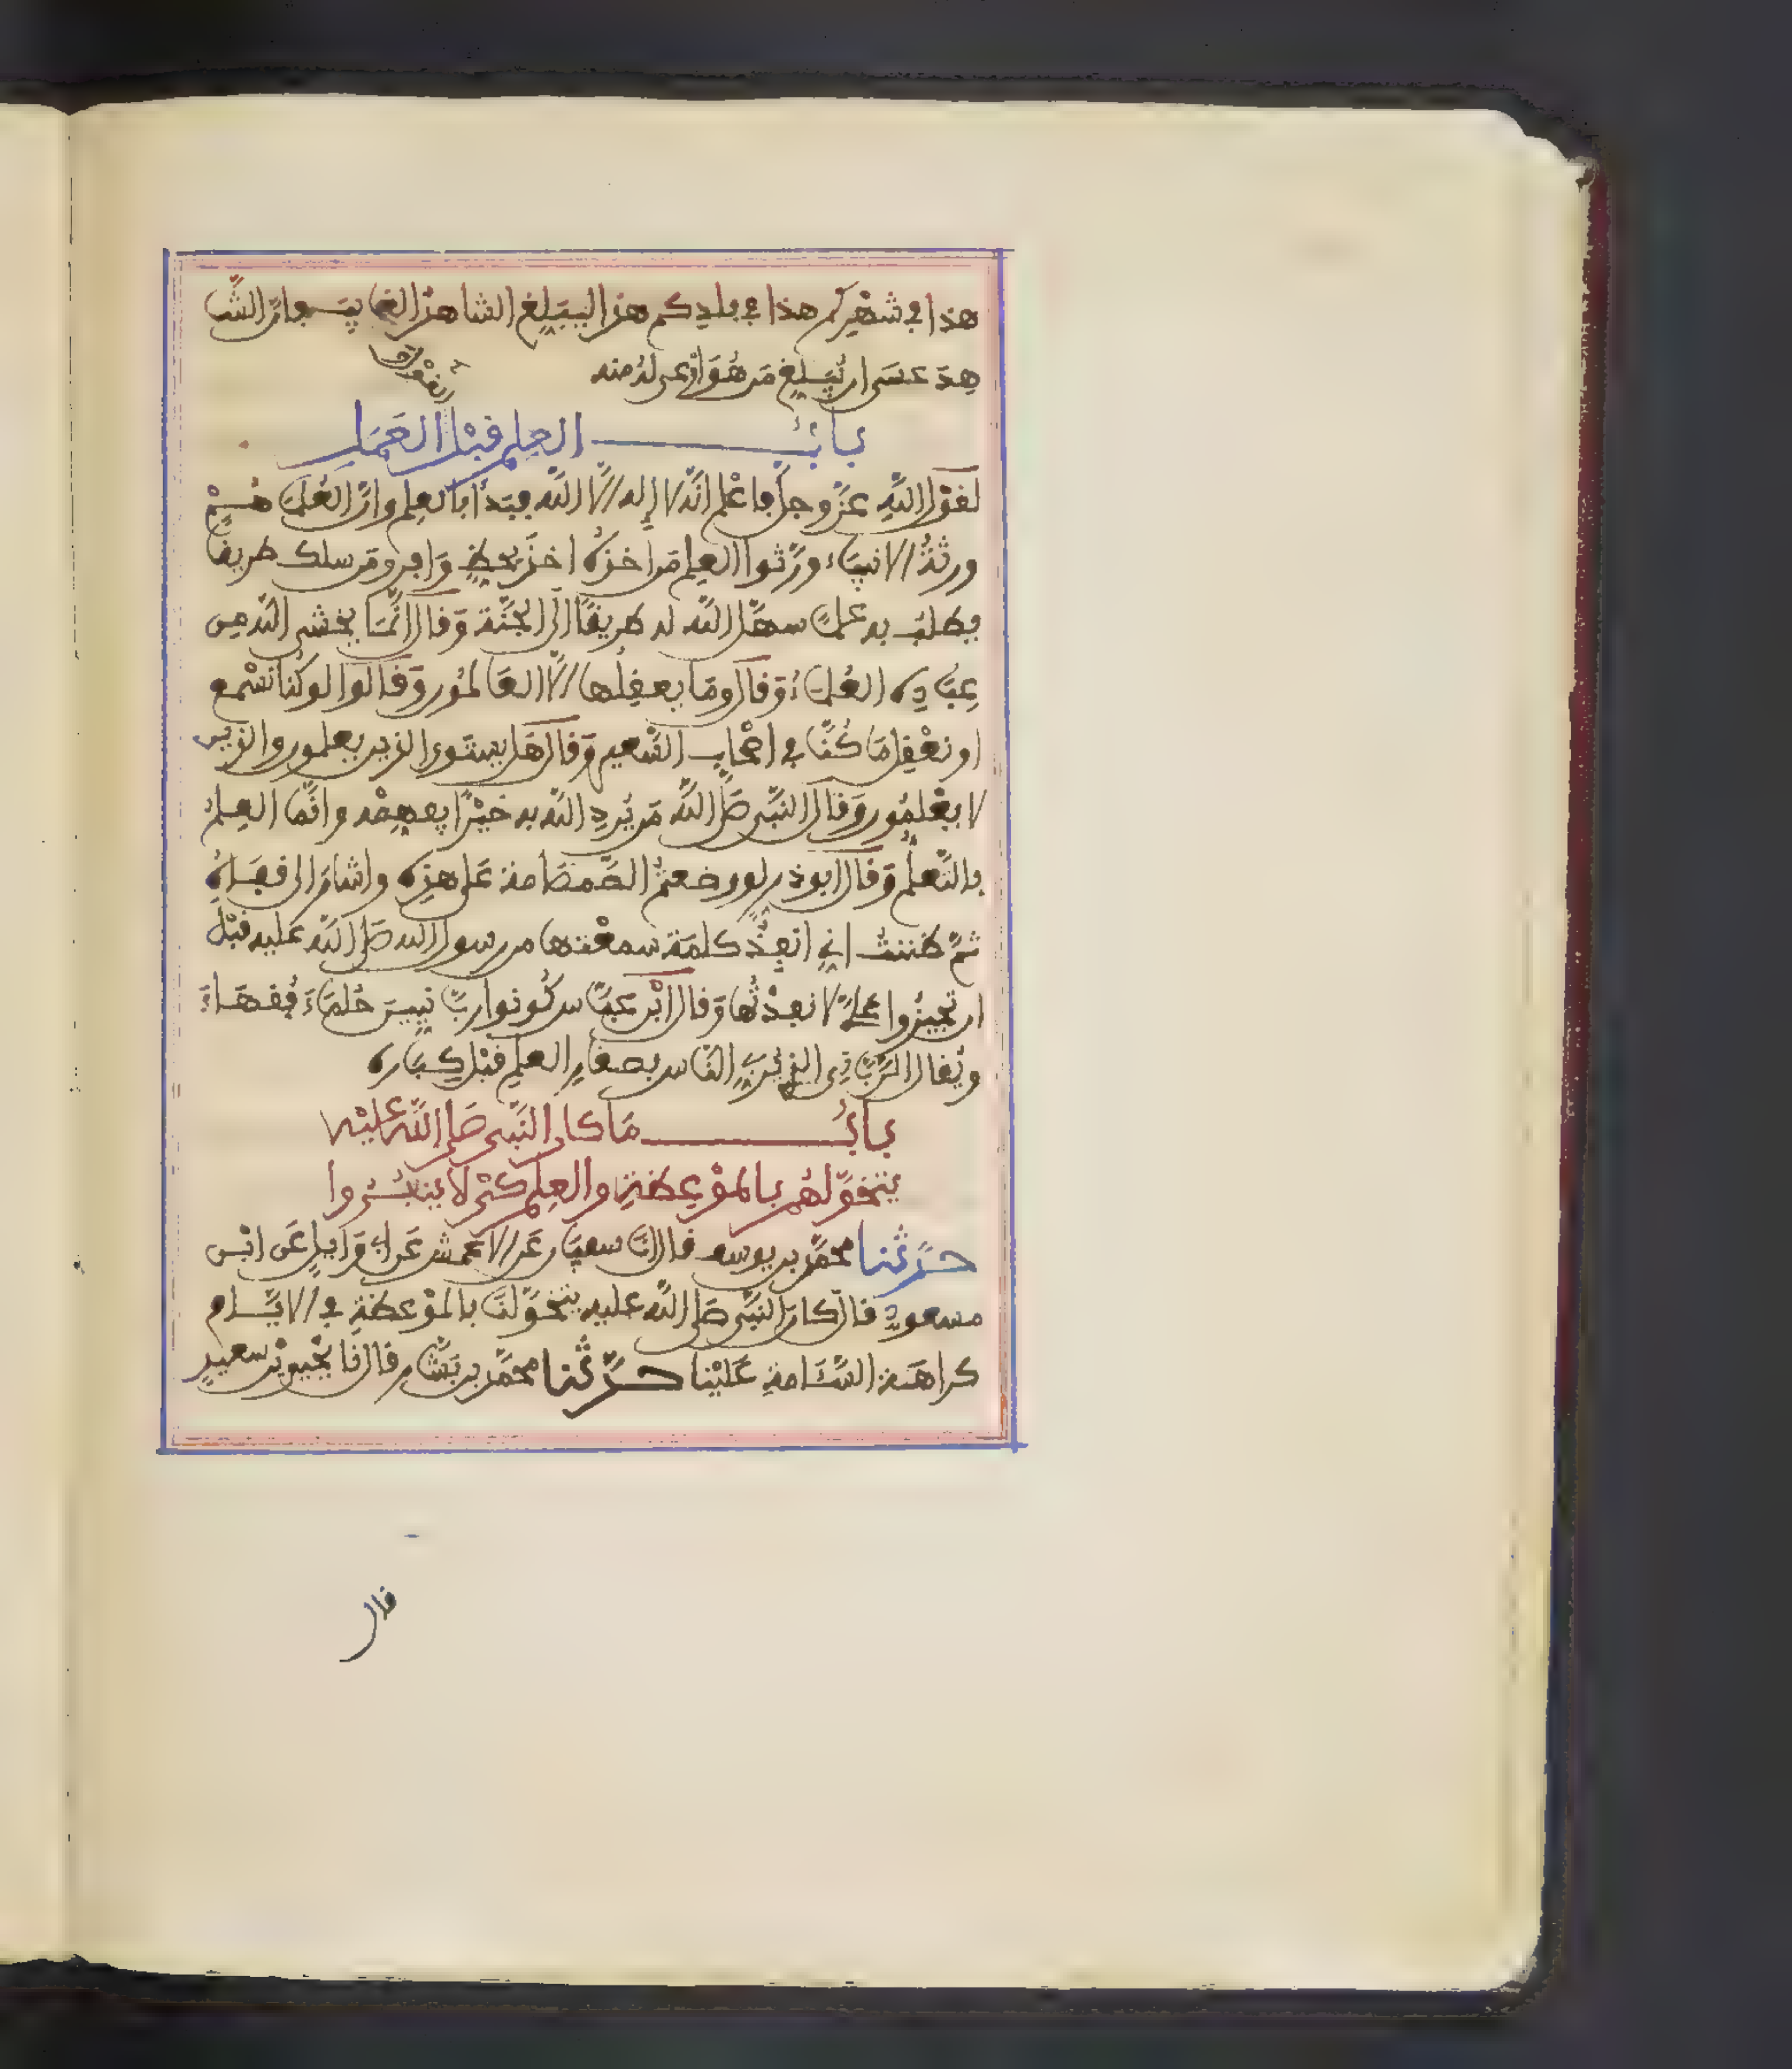 هذا في شهركم هذا في بلدكم هذا ليبلغ الشاهد الغايب فان الشا
هد عسى ان يبلغ من هو اوعى له منه
باب العلم قبل العمل
لقول الله عز وجل فاعلم انه لا إله إلا الله فبدأ بالعلم وان العلماء هم
ورثة الانبياء ورثوا العلم من اخذه اخذ بحظ وافر ومن سلك طريقا
يطلب به علما سهل الله له طريقا الى الجنة وقال انما يخشى الله من
عباده العلماء وقال وما يعقلها إلا العالمون وقالوا لو كنا نسمع
او نعقل ما كنا في اصحاب السعير وقال هل يستوى الذين يعلمون والذين
لا يعلمون وقال النبي صلى الله من يرد الله به خيرا يفقهه وانما العلم
بالتعلم وقال ابو ذر لو وضعتم الصمصامة على هذه واشار الى قفاه
ثم ظننت اني انفذ كلمة سمعتها من رسول الله صلى الله عليه قبل
ان تجيزوا علي لانفذتها وقال ابن عباس كونوا ربانيين حلماء فقهاء
ويقال الرباني الذي يربي الناس بصغار العلم قبل كباره
باب ما كان النبي صلى الله عليه
يتخولهم بالموعظة والعلم كي لا ينفروا
حدثنا محمد بن يوسف قال انا سفيان عن الاعمش عن ابي وايل عن ابن
مسعود قال كان النبي صلى الله عليه يتخولنا بالموعظة في الايام
كراهة السئامة علينا حدثنا محمد بن بشار قال نا يحيى بن سعيد
قال